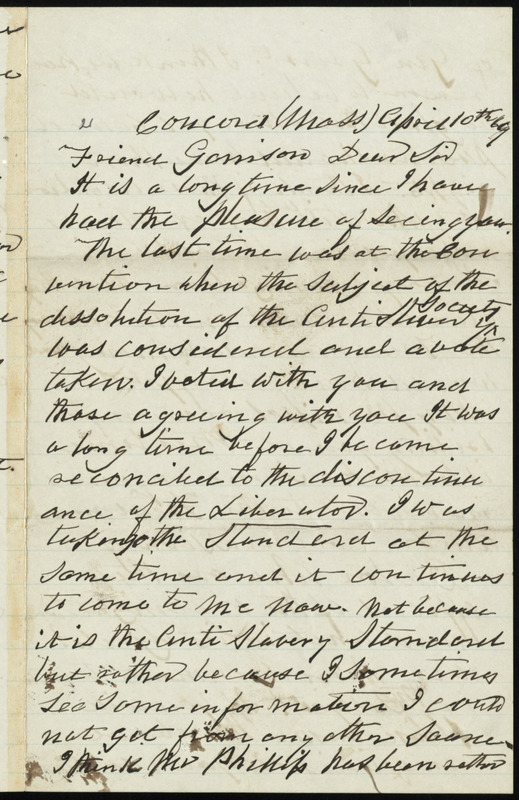 Concord (Mass) April 10th 69
Friend Garrison Dear Sir
It is a long time since I have
had the pleasure of seeing you.
The last time was at the Con
vention when the subject of the
dissolution of the Anti Slavery Society
was considered and a vote
taken. I voted with you and
those agreeing with you It was
a long time before I became
reconciled to the discontinu
ance of the Liberator. I was
taking the Standard at the
same time and it continues
to come to me now. Not because
it is the Anti Slavery Standard
but rather because I sometimes
see some information I could
not get from any other source
I think Mr Phillips has been rather